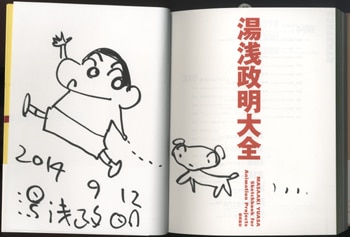 2014
9 12
湯浅政明
湯浅政明大全
MASAAKI YUASA
Sketchbook for
Animation Projects